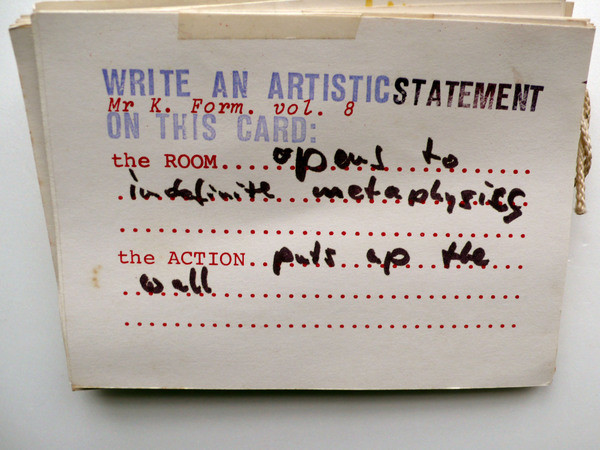 WRITE AN ARTISTIC STATEMENT
Mr K. Form. vol. 8
ON THIS CARD:
the ROOM.... opens to
indefinite metaphysics
the ACTION.. puts up the
wall